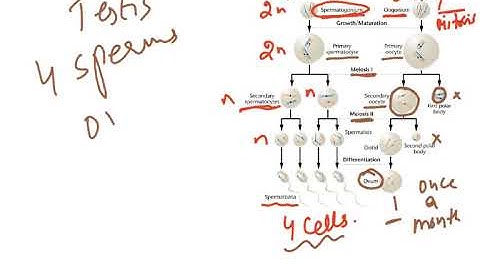 Testis
4 Sperms
2n
Spermatogonium
Oogonium
Mitosis
Growth/Maturation
2n
Primary spermatocyte
Primary oocyte
Meiosis I
n
n
Secondary spermatocytes
Secondary oocyte
First polar body
x
Meiosis II
n
Spermatids
Ootid
Second polar body
x
Differentiation
Spermatozoa
Ovum
4 Cells.
1
once
a
month